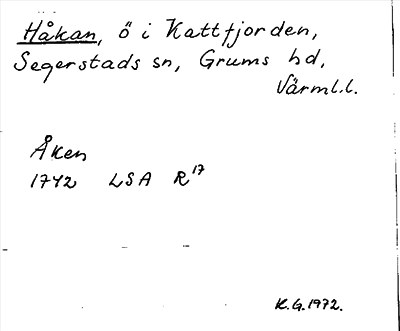 Håkan, ö i Kattfjorden,
Segerstads sn, Grums hd,
Värml.l.
Åken
1742 LSA R17
K.G.1972.